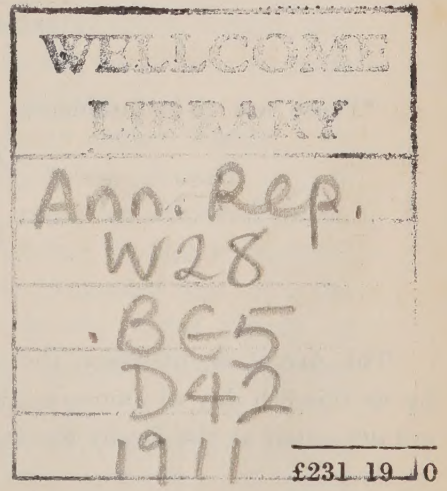 WELLCOME
LIBRARY
Ann. Rep.
W28
.BE5
D42
1911
£231 19 0